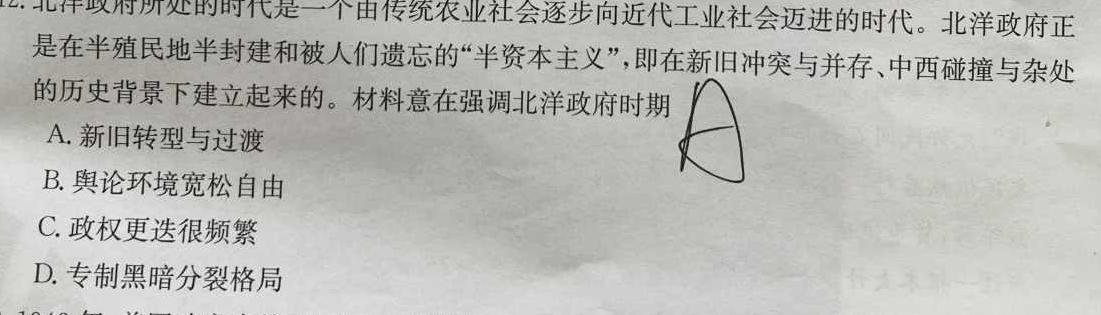 12. 北洋政府所处的时代是一个由传统农业社会逐步向近代工业社会迈进的时代。北洋政府正
是在半殖民地半封建和被人们遗忘的“半资本主义”,即在新旧冲突与并存、中西碰撞与杂处
的历史背景下建立起来的。材料意在强调北洋政府时期
A
A. 新旧转型与过渡
B. 舆论环境宽松自由
C. 政权更迭很频繁
D. 专制黑暗分裂格局